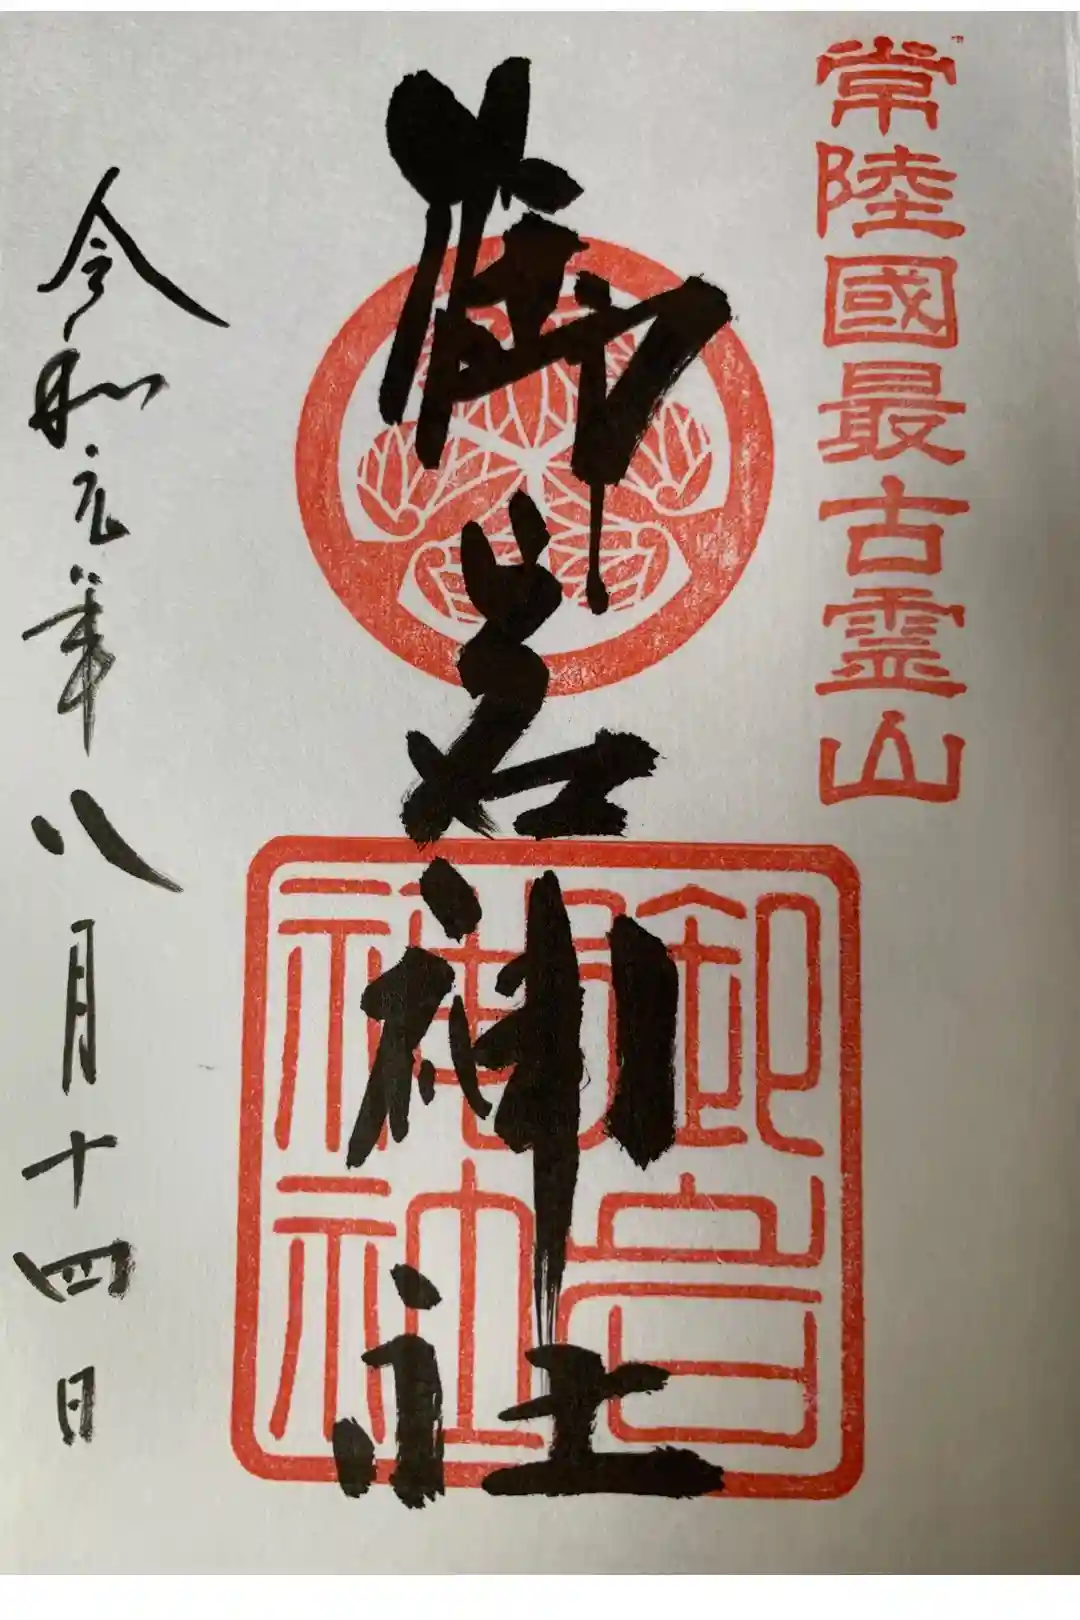 常陸國最古霊山
御岩神社
御岩神社
令和元年八月十四日